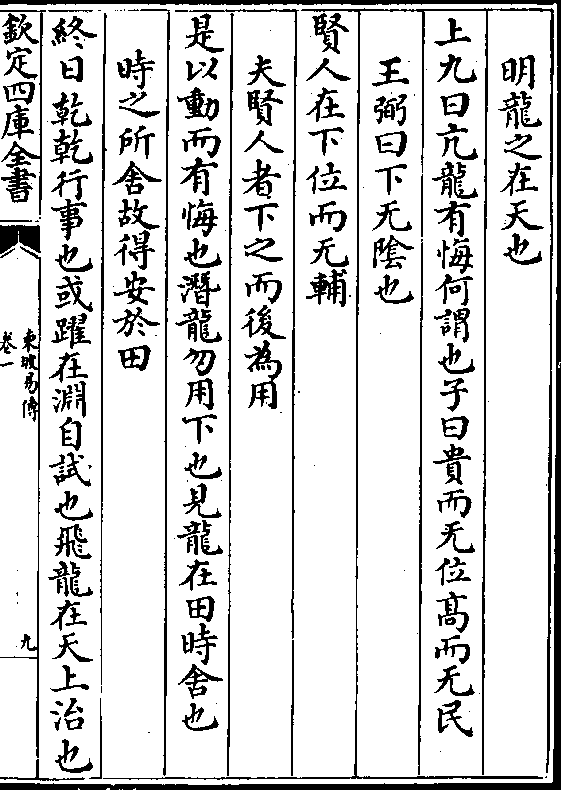 明龍之在天也
上九曰亢龍有悔何謂也子曰貴而无位髙而无民
王弼曰下无隂也
賢人在下位而无輔
夫賢人者下之而後為用
是以動而有悔也潛龍勿用下也見龍在田時舍也
時之所舍故得安於田
終日乾乾行事也或躍在淵自試也飛龍在天上治也
欽定四庫全書
東坡易傳
卷一
九